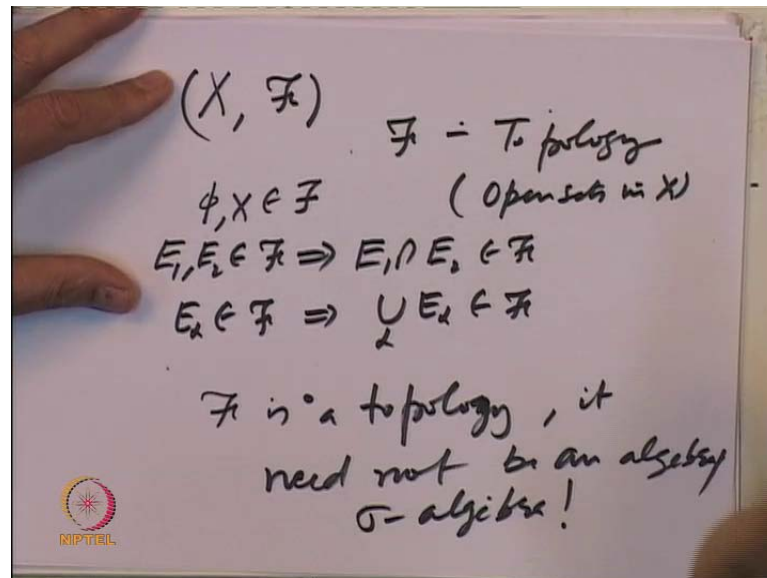 (X, ℱ)
ℱ - Topology
(Open sets in X)
ϕ, X ∈ ℱ
E₁, E₂ ∈ ℱ ⇒ E₁ ∩ E₂ ∈ ℱ
E_α ∈ ℱ ⇒ ⋃_α E_α ∈ ℱ
ℱ is a topology, it
need not be an algebra
σ-algebra!
NPTEL